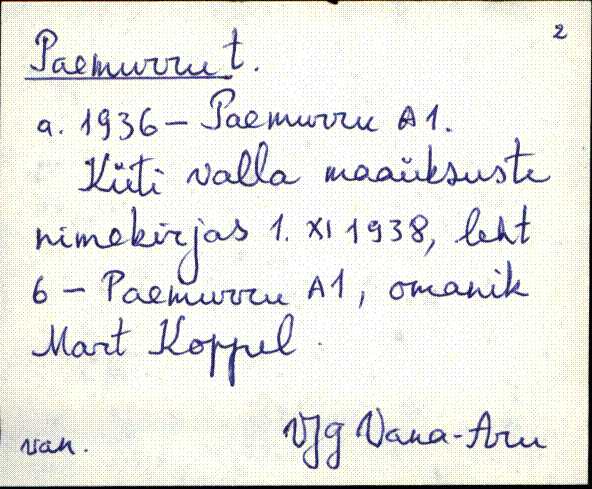 2
Paemurru t.
a. 1936 – Paemurru A1.
Küti valla maaüksuste
nimekirjas 1. XI 1938, leht
6 – Paemurru A1, omanik
Mart Koppel.
van. VJg Vana-Aru